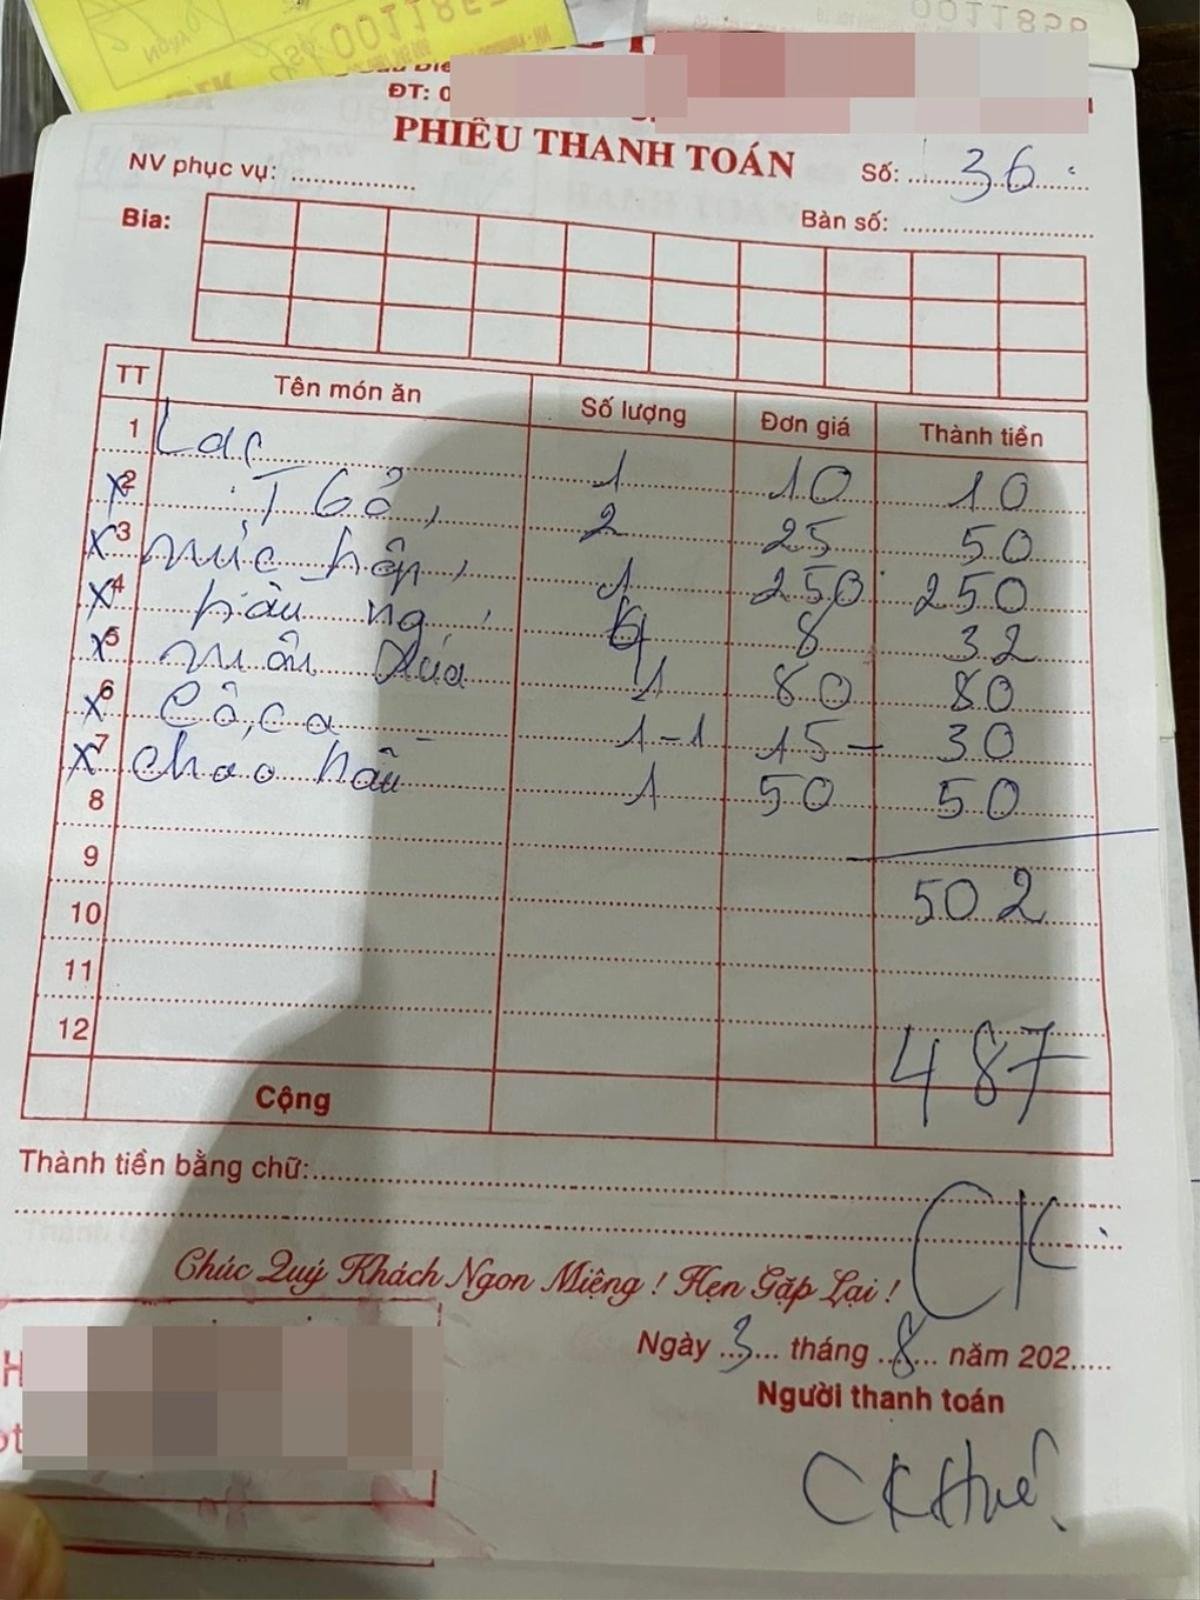 0011856
ĐT: 0
PHIẾU THANH TOÁN
NV phục vụ: ................ Số: 36
Bia: Bàn số: ............................
TT Tên món ăn Số lượng Đơn giá Thành tiền
1 Lạc 1 10 10
x 2 2 25 50
x 3 mực hấp, 1 250 250
x 4 hàu ng, 4 8 32
x 5 1 80 80
x 6 Cô, ca 1-1 15 - 30
x 7 chao hàu 1 50 50
8
9
502
10
11
12
487
Cộng
Thành tiền bằng chữ:
CK
Chúc Quý Khách Ngon Miệng ! Hẹn Gặp Lại !
Ngày 3 tháng 8 năm 202.....
Người thanh toán
CK Huế